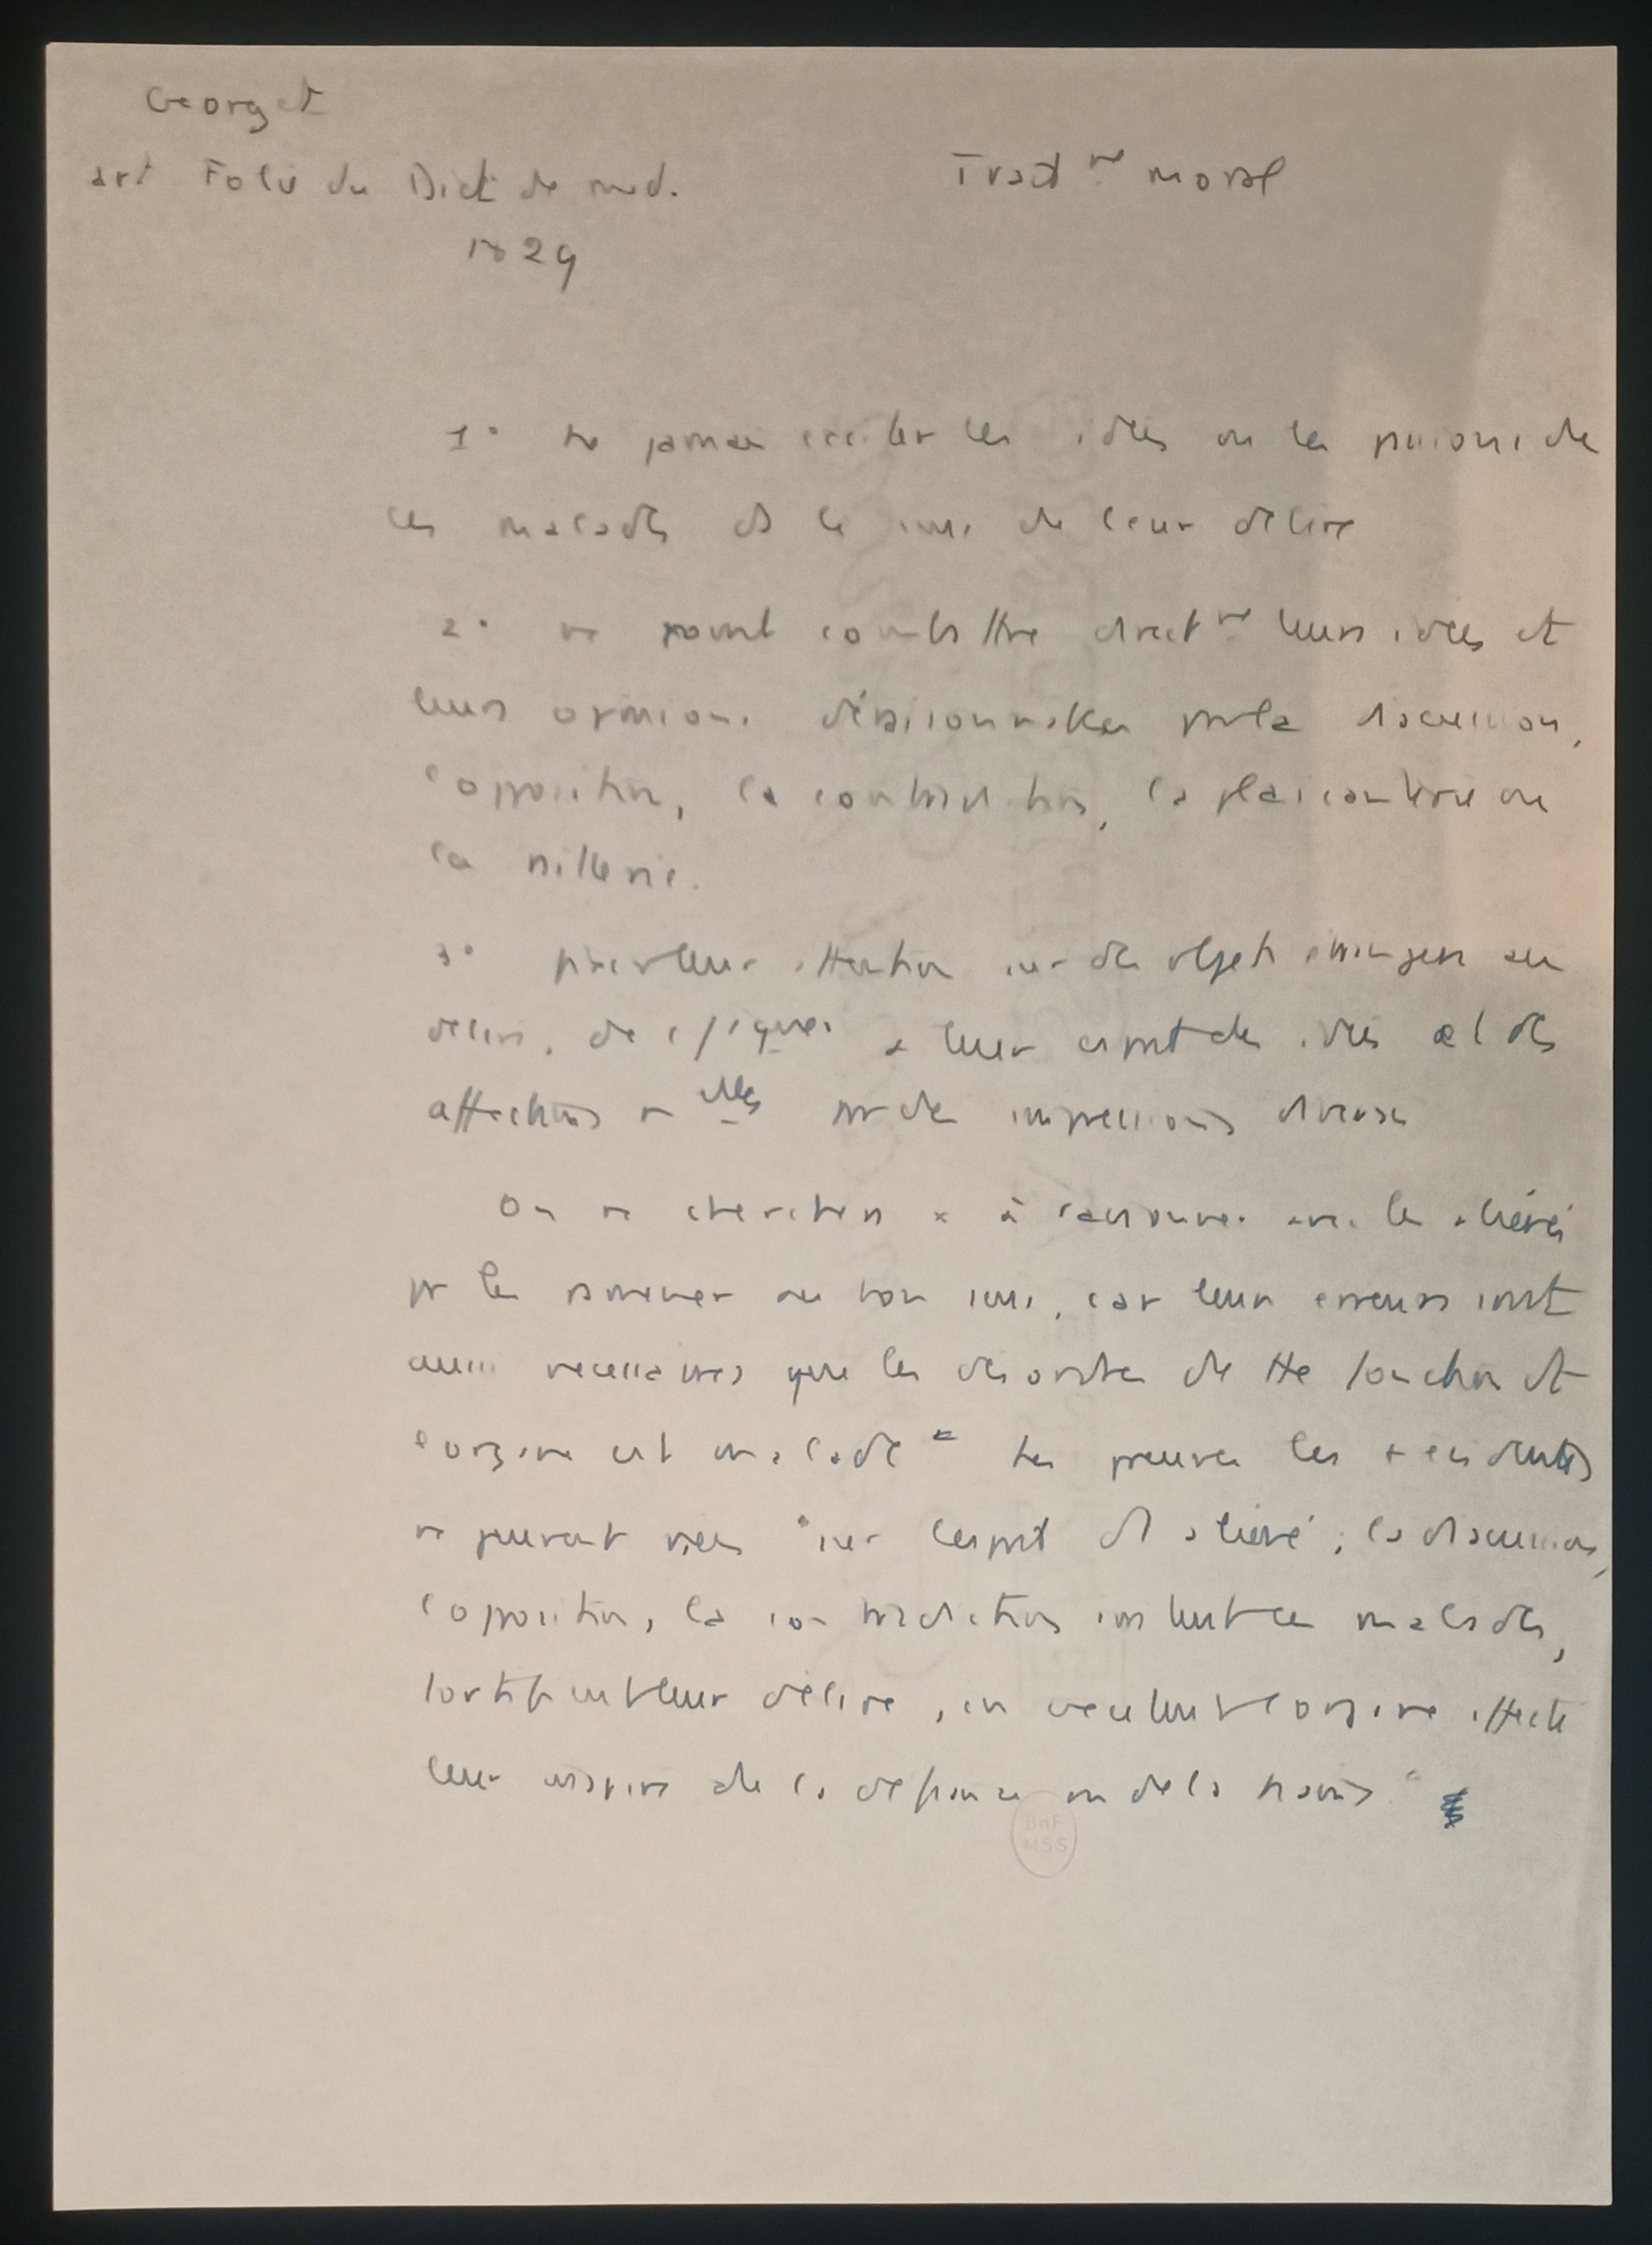 Georget
art Folie du Dict de med.
Trait mt moral
1829
1° ne jamais exciter les idées ou les passions de
ces malades ds le sens de leur délire
2° ne point combattre direct mt leurs idées et
leurs opinions déraisonnables par la discussion,
l'opposition, la contradiction, la plaisanterie ou
la raillerie.
3° fixer leur attention sur des objets étrangers au
délire, de à leur esprit des idées et des
affections nvelles par des impressions diverses
On ne cherchera x à raisonner avec les aliénés
pr les ramener au bon sens, car leurs erreurs sont
aussi nécessaires que les désordres de tte fonction dt
l'organe est malade les preuves les + évidentes
ne peuvent rien sur l'esprit d'1 aliéné ; la discussion,
l'opposition, la contradiction irritent ces malades,
fortifient leur délire, en excitent l'organe affecté
leur inspire de la défiance ou de la haine"
BnF
MSS